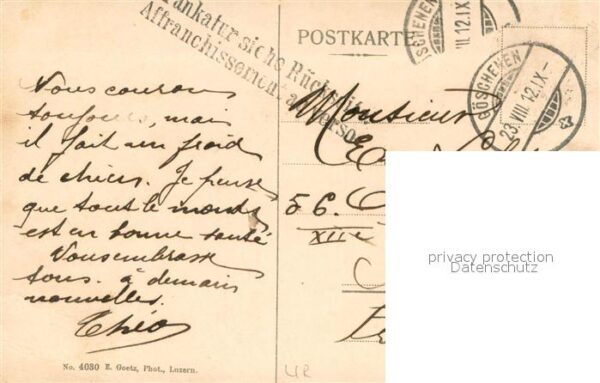 Frankatur siehe Rückseite
Affranchissement au verso
POSTKARTE
GÖSCHENEN
VIII.12.IX
GÖSCHENEN
23.VIII.12.IX-
Nous courons
toujours, mais
il fait un froid
de chiens. Je pense
que tout le monde
est en bonne santé
Vous embrasse
tous. à demain
nouvelles.
Théo
Monsieur
56.
XIIe
privacy protection
Datenschutz
No. 4030 E. Goetz, Phot., Luzern.